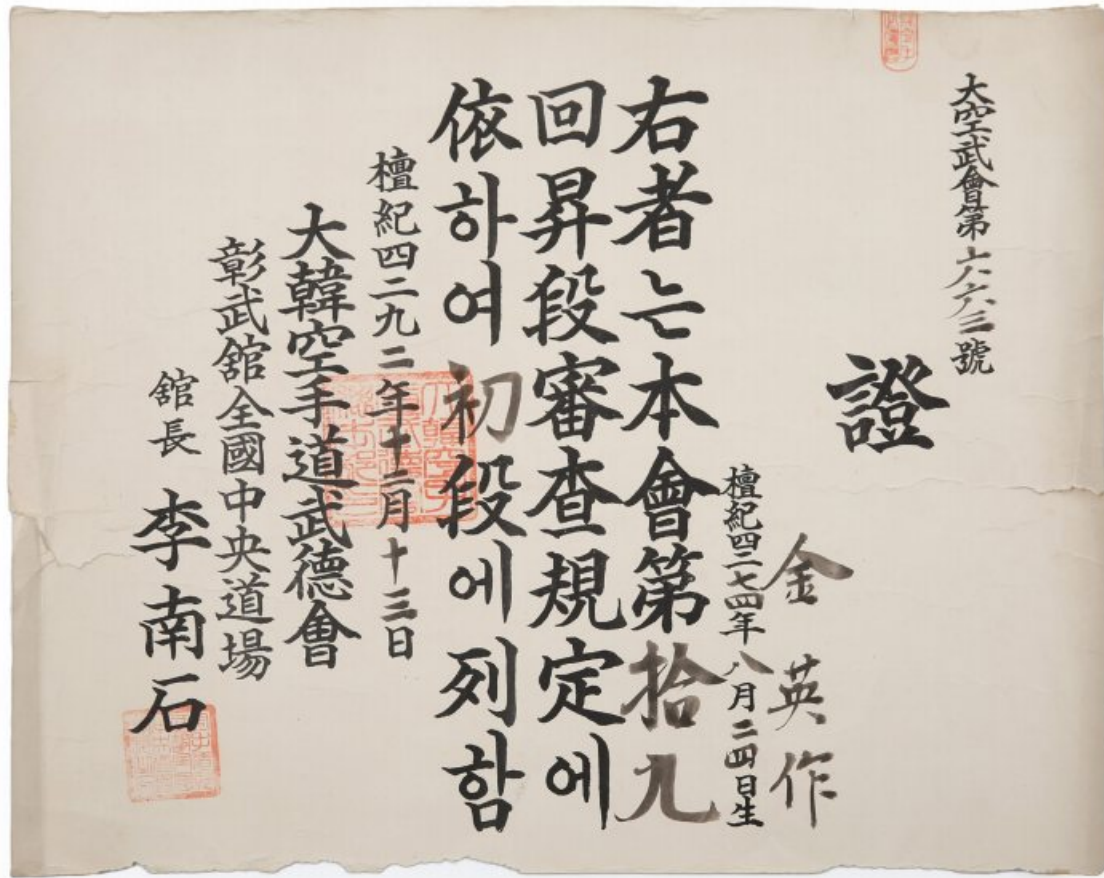 大空武會第六六六三號
證
金英作
檀紀四二七四年八月二四日生
右者는本會第拾九
回昇段審査規定에
依하여初段에列함
檀紀四二九二年十二月十三日
大韓空手道武德會
彰武舘全國中央道場
舘長 李南石